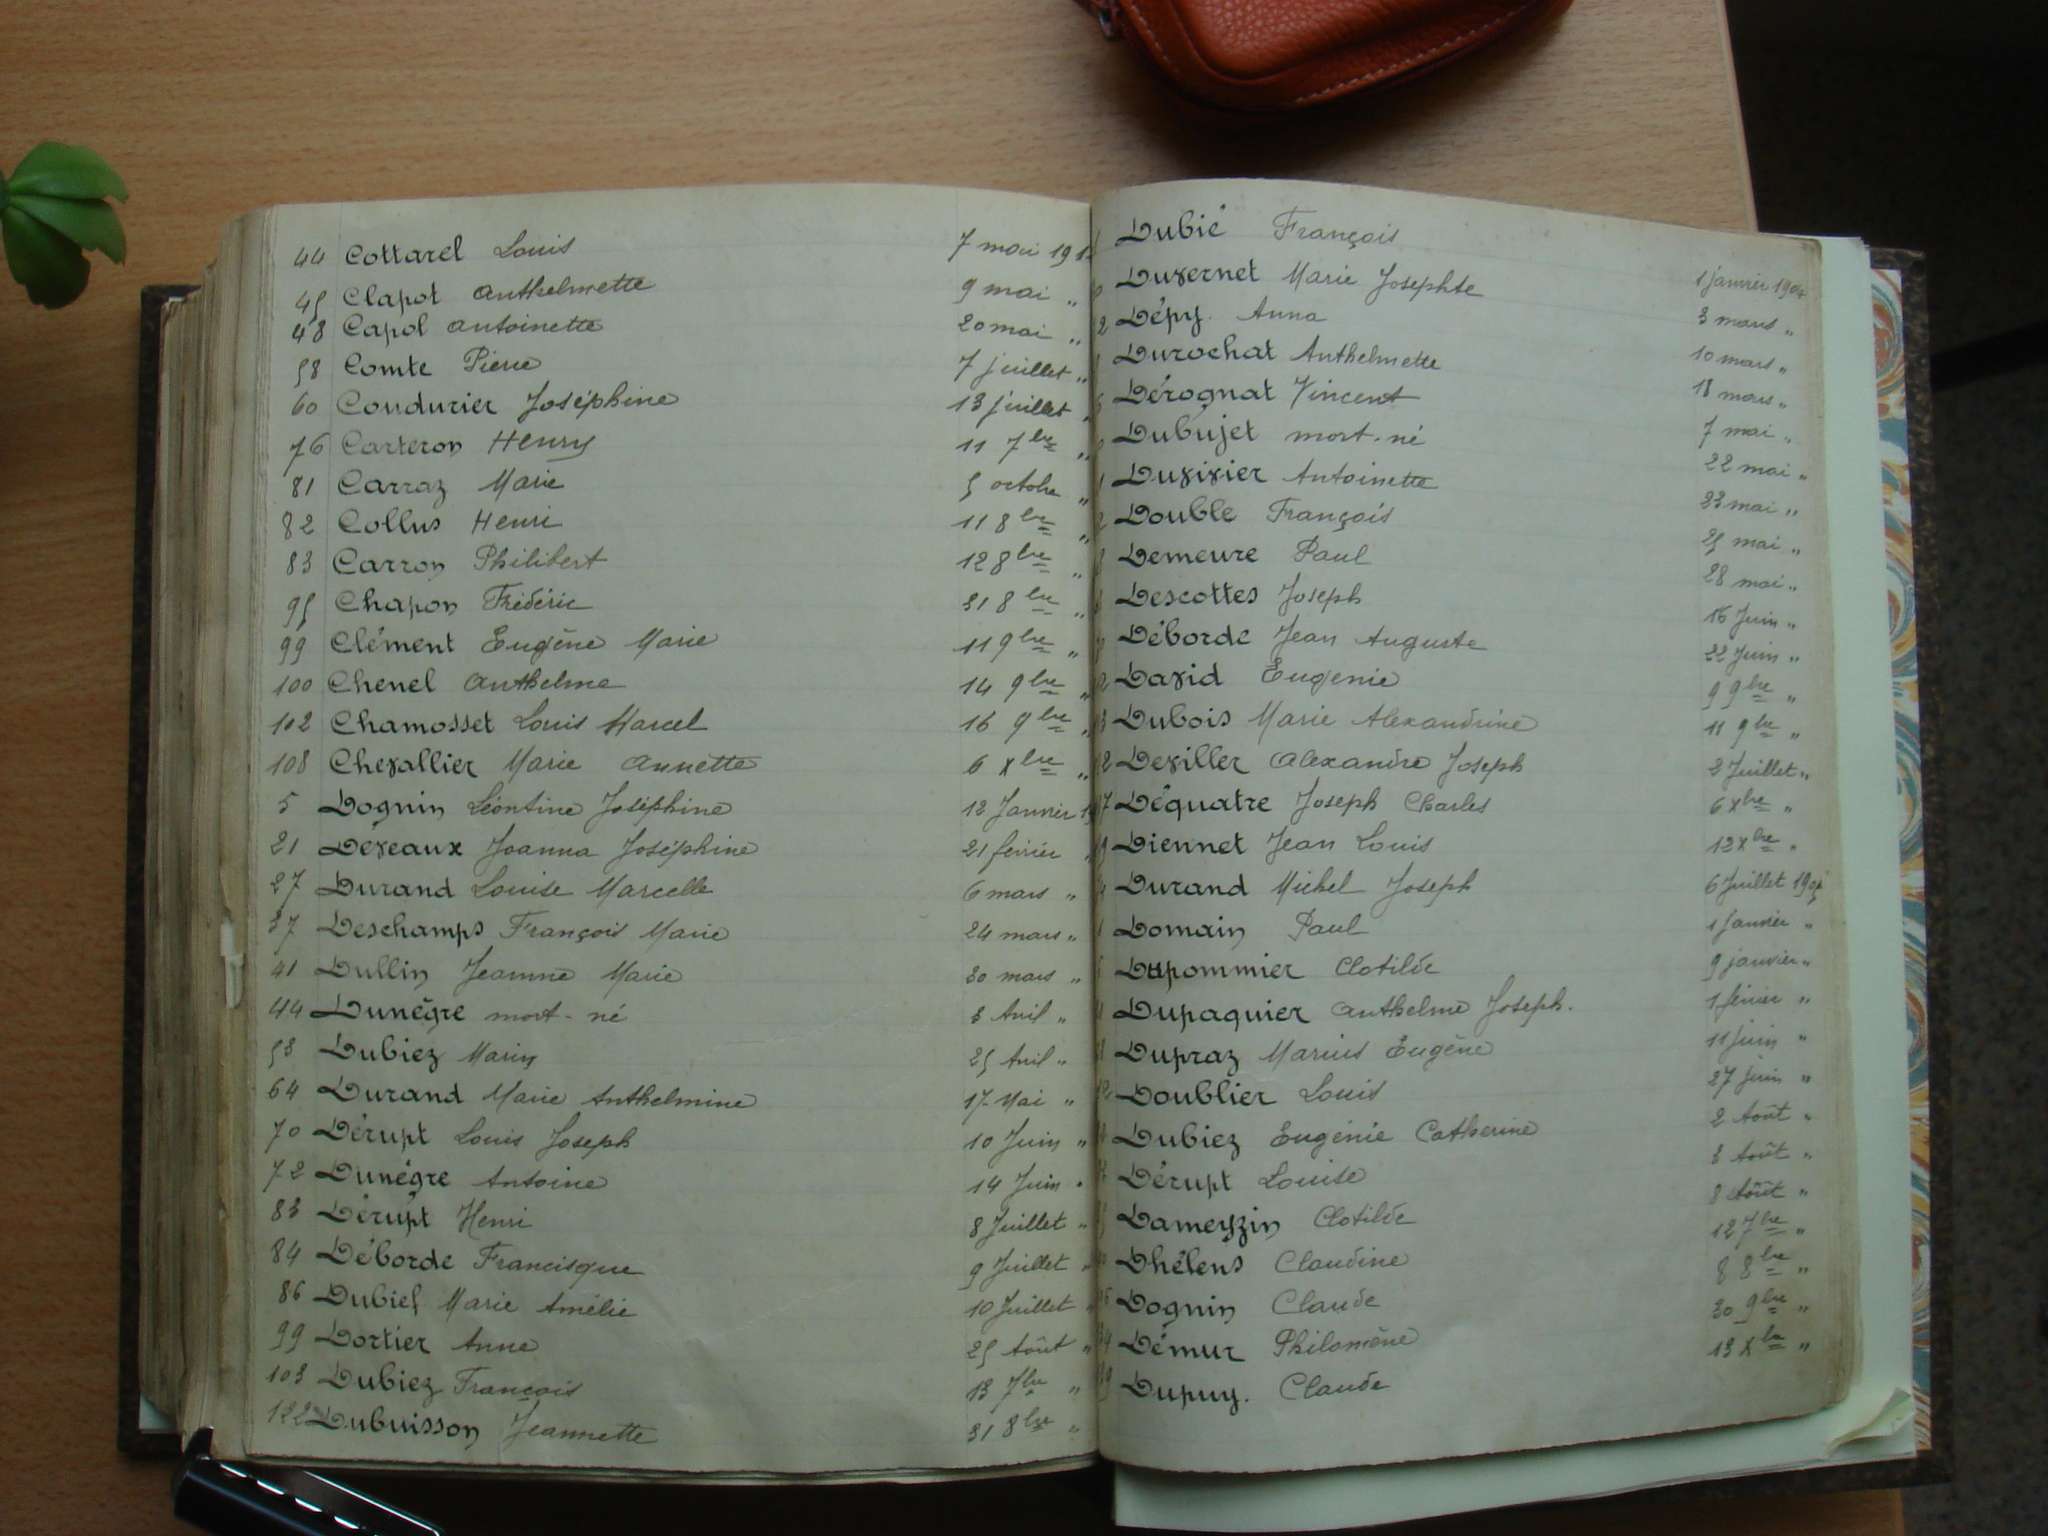 44 Cottarel Louis 7 mai
45 Clapot Anthelmette 9 mai "
48 Capol Antoinette 20 mai "
58 Comte Pierre 7 juillet "
60 Coudurier Joséphine 13 juillet "
76 Carteron Henry 11 7bre "
81 Carraz Marie 5 octobre "
82 Collus Henri 11 8bre "
83 Carron Philibert 12 8bre "
95 Chapon Frédéric 31 8bre "
99 Clément Eugène Marie 11 9bre "
100 Chenel Anthelme 14 9bre "
102 Chamosset Louis Marcel 16 9bre "
108 Chevallier Marie Annette 6 Xbre "
5 Dognin Léontine Joséphine 12 Janvier
21 Déveaux Joanna Joséphine 21 février "
27 Durand Louise Marcelle 6 mars "
37 Deschamps François Marie 24 mars "
41 Dullin Jeanne Marie 30 mars "
44 Dunègre mort-né 3 Avril "
53 Dubiez Marin 25 Avril "
64 Durand Marie Anthelmine 17 Mai "
70 Dérupt Louis Joseph 10 Juin "
72 Dunègre Antoine 14 Juin "
83 Dérupt Henri 8 Juillet "
84 Déborde Francisque 9 Juillet "
86 Dubief Marie Amélie 10 Juillet "
99 Dortier Anne 25 Août "
103 Dubiez François 13 7bre "
122 Dubuisson Jeannette 31 8bre "
Dubié François
Duvernet Marie Josephte 1 janvier 1904
Dépy. Anna 3 mars "
Durochat Anthelmette 10 mars "
Dérognat Vincent 18 mars "
Dubujet mort-né 7 mai "
Duvivier Antoinette 22 mai "
Double François 23 mai "
Demeure Paul 25 mai "
Descottes Joseph 28 mai "
Déborde Jean Auguste 16 Juin "
David Eugenie 22 Juin "
Dubois Marie Alexandrine 9 9bre "
Deviller Alexandre Joseph 11 9bre "
Déquatre Joseph Charles 2 Juillet "
Diennet Jean Louis 6 Xbre "
Durand Michel Joseph 12 Xbre "
Domain Paul 6 Juillet
Dupommier Clotilde 1 Janvier "
Dupaquier Anthelme Joseph. 9 janvier "
Dupraz Marius Eugène 1 février "
Doublier Louis 11 juin "
Dubiez Eugénie Catherine 27 juin "
Dérupt Louise 2 Août "
Dameyzin Clotilde 3 Août "
Dhélens Claudine 8 Août "
Dognin Claude 12 7bre "
Démur Philomène 8 8bre "
Dupuy. Claude 30 9bre "
13 Xbre "